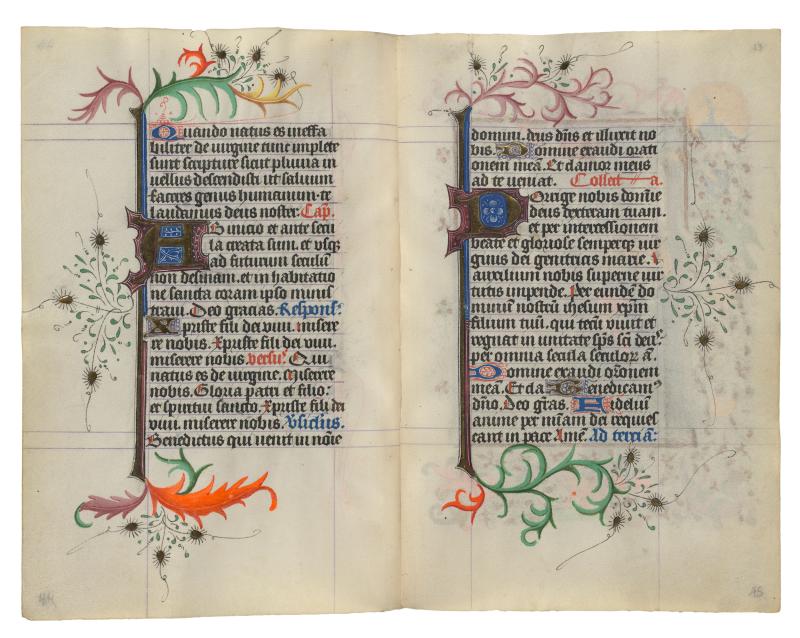 Quando natus es ineffa
biliter de uirgine tunc implete
sunt scripture sicut pluuia in
uellus descendisti ut saluum
faceres genus humanum·te
laudamus deus noster. Cap̄.
AB inicio et ante secu
la creata sum. et vsqꝫ
ad futurum seculū
non desinam. et in habitatio
ne sancta coram ipso minis
traui. Deo gracias. Respons̄:
Xpriste fili dei viui. misere
re nobis. Xpriste fili dei viui.
miserere nobis. versuꝰ. Qui
natus es de uirgine. Miserere
nobis. Gloria patri et filio:
et spiritui sancto. Xpriste fili dei
viui. miserere nobis. Vsiclus.
Benedictus qui uenit in noīe
domini. deus dn̄s et illuxit no
bis. Domine exaudi orati
onem meā. Et clamor meus
ad te ueniat. Collecta.
POrrige nobis domīe
deus dexteram tuam.
et per intercessionem
beate et gloriose semperqꝫ uir
ginis dei genitricis marie.
auxilium nobis superne uir
tutis impende. Per eundē do
minum nostrū ihesum xpm̄
filium tuū. qui tecū viuit et
regnat in unitate sp̄s sc̄i deus.
per omnia secula seculoꝝ a͞.
Domine exaudi or̄onem
meā. Et cla Benedicamꝰ
dn̄o. Deo gr̄as. Fideliū
anime per mīam dei requies
cant in pace Amē. Ad terciā:
45